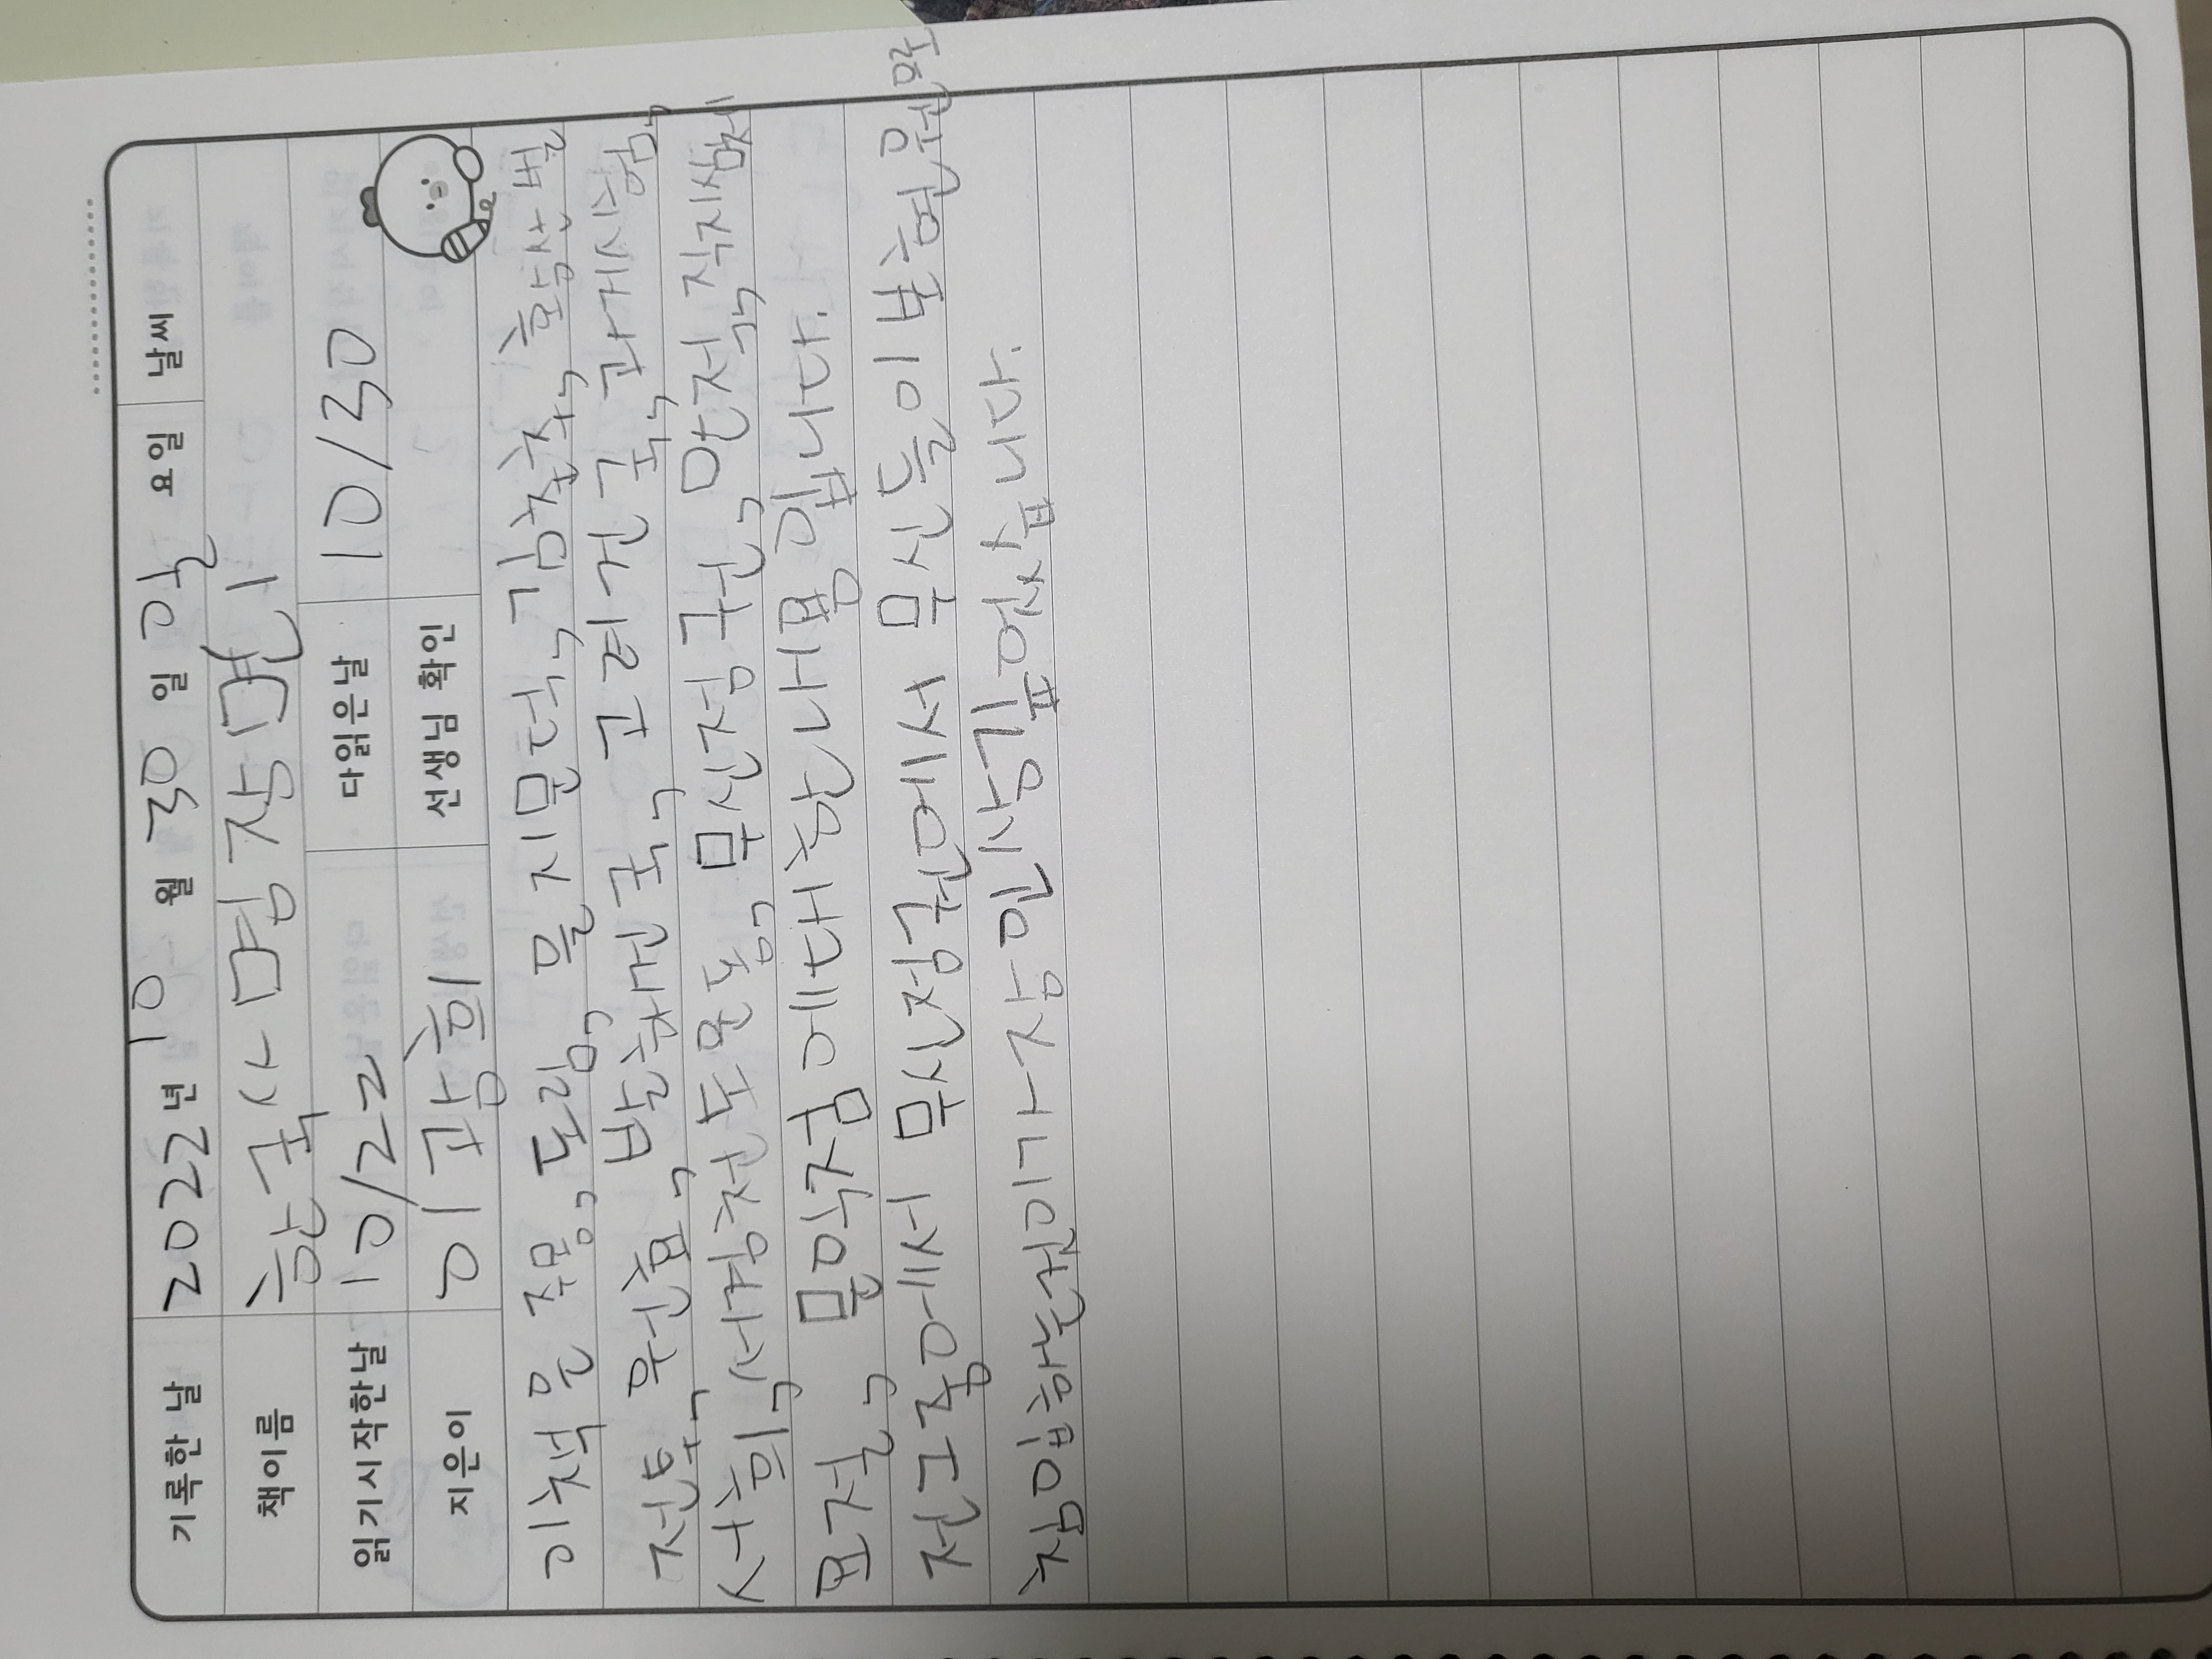 기록한 날 2022년 10월 30일 일요일 날씨
책이름 한국사 명장면1
읽기시작한날 10/22 다읽은날 10/30
지은이 이광희 선생님 확인
이책은 주몽, 도림, 을지문덕, 김춘추, 황산벌
전투, 원효, 발해건국, 고려건국, 과거시험,
서희, 서경천도운동, 무신정권, 만적, 직지심체
요절, 문익점에대한내용입니다.
전그중에서 무신정권에서 무신들이 보현원으로
침입하는것이가장인상깊었습니다.